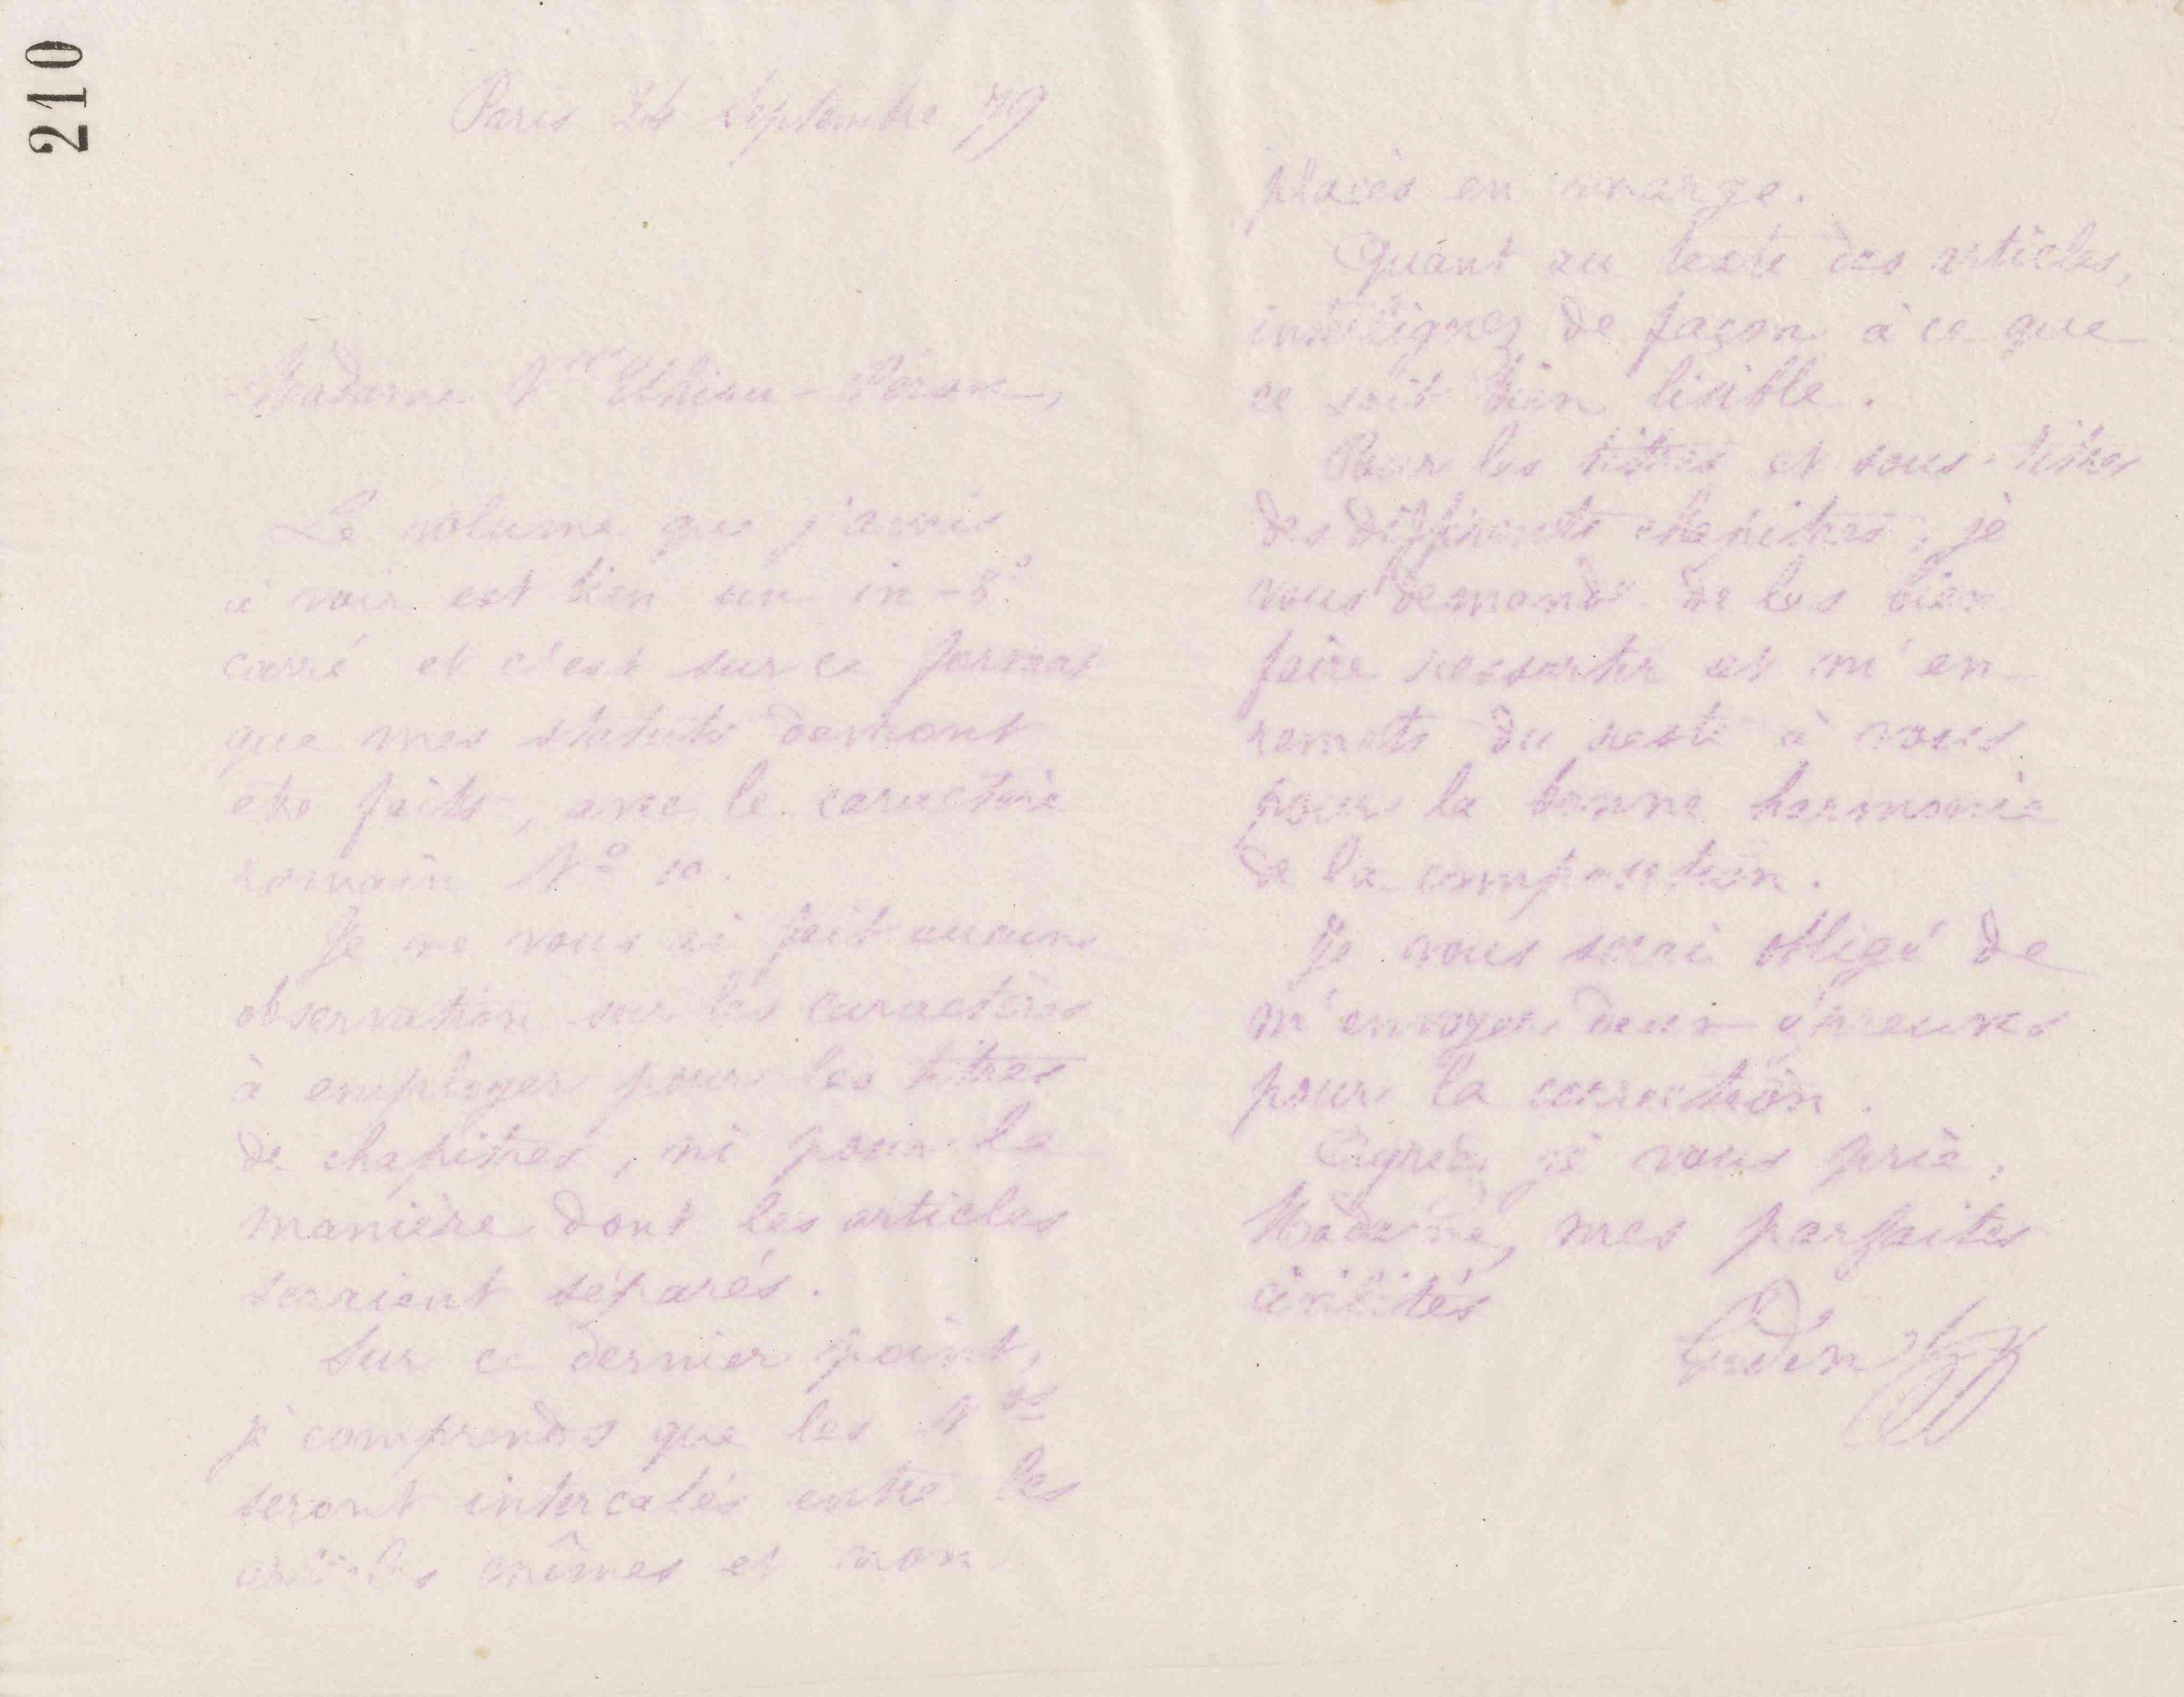 210
Paris 24 Septembre 79
Madame Vve Ethiou-Pérou,
Le volume que j'avais
à voir est bien un in-8°
carré et c'est sur ce format
que mes statuts devront
être faits, avec le caractère
romain N° 10.
Je ne vous ai fait aucune
observation sur les caractères
à employer pour les titres
de chapitres, ni pour la
manière dont les articles
serrient séparés.
Sur ce dernier point,
je comprends que les Nos
seront intercalés entre les
articles mêmes et non
placés en marge.
Quant au texte des articles,
interlignez de façon à ce que
ce soit bien lisible.
Pour les titres et sous-titres
des différents chapitres, je
vous demande de les bien
faire ressortir et m'en
remets du reste à vous
pour la bonne harmonie
de la composition.
Je vous serai obligé de
m'envoyer deux épreuves
pour la correction.
Agréez, je vous prie,
Madame, mes parfaites
civilités
Godin